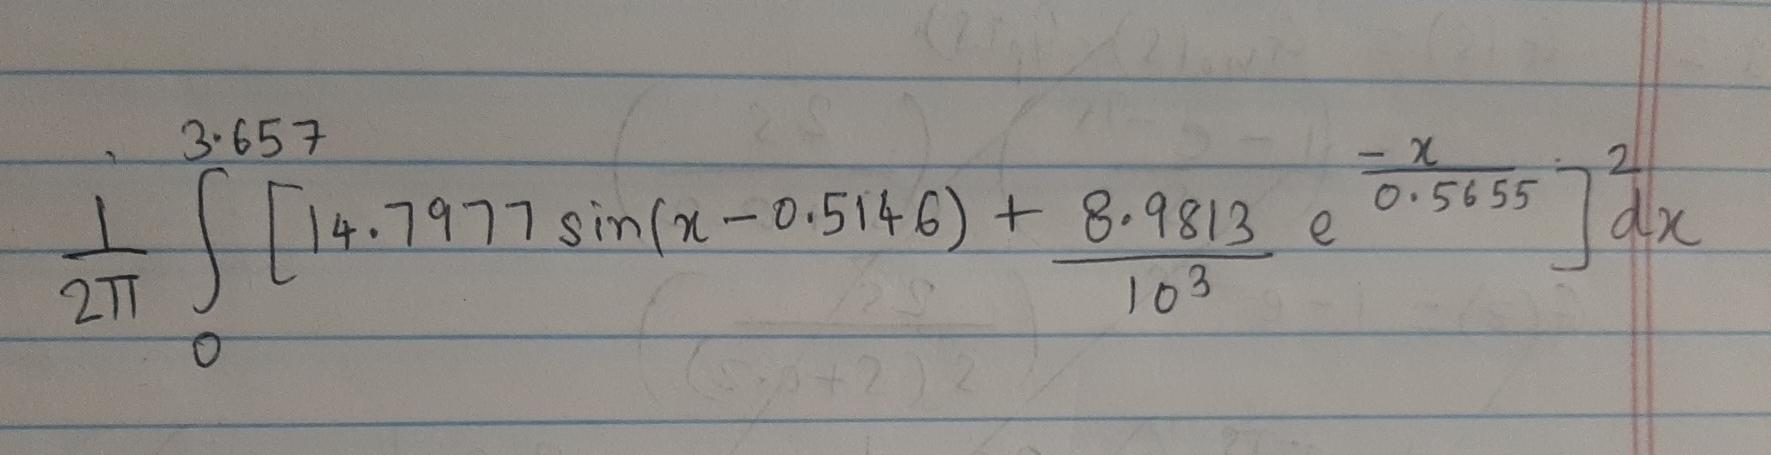 \frac{1}{2\pi} \int_{0}^{3.657} \left[ 14.7977 \sin(x - 0.5146) + \frac{8.9813}{10^3} e^{\frac{-x}{0.5655}} \right]^2 dx